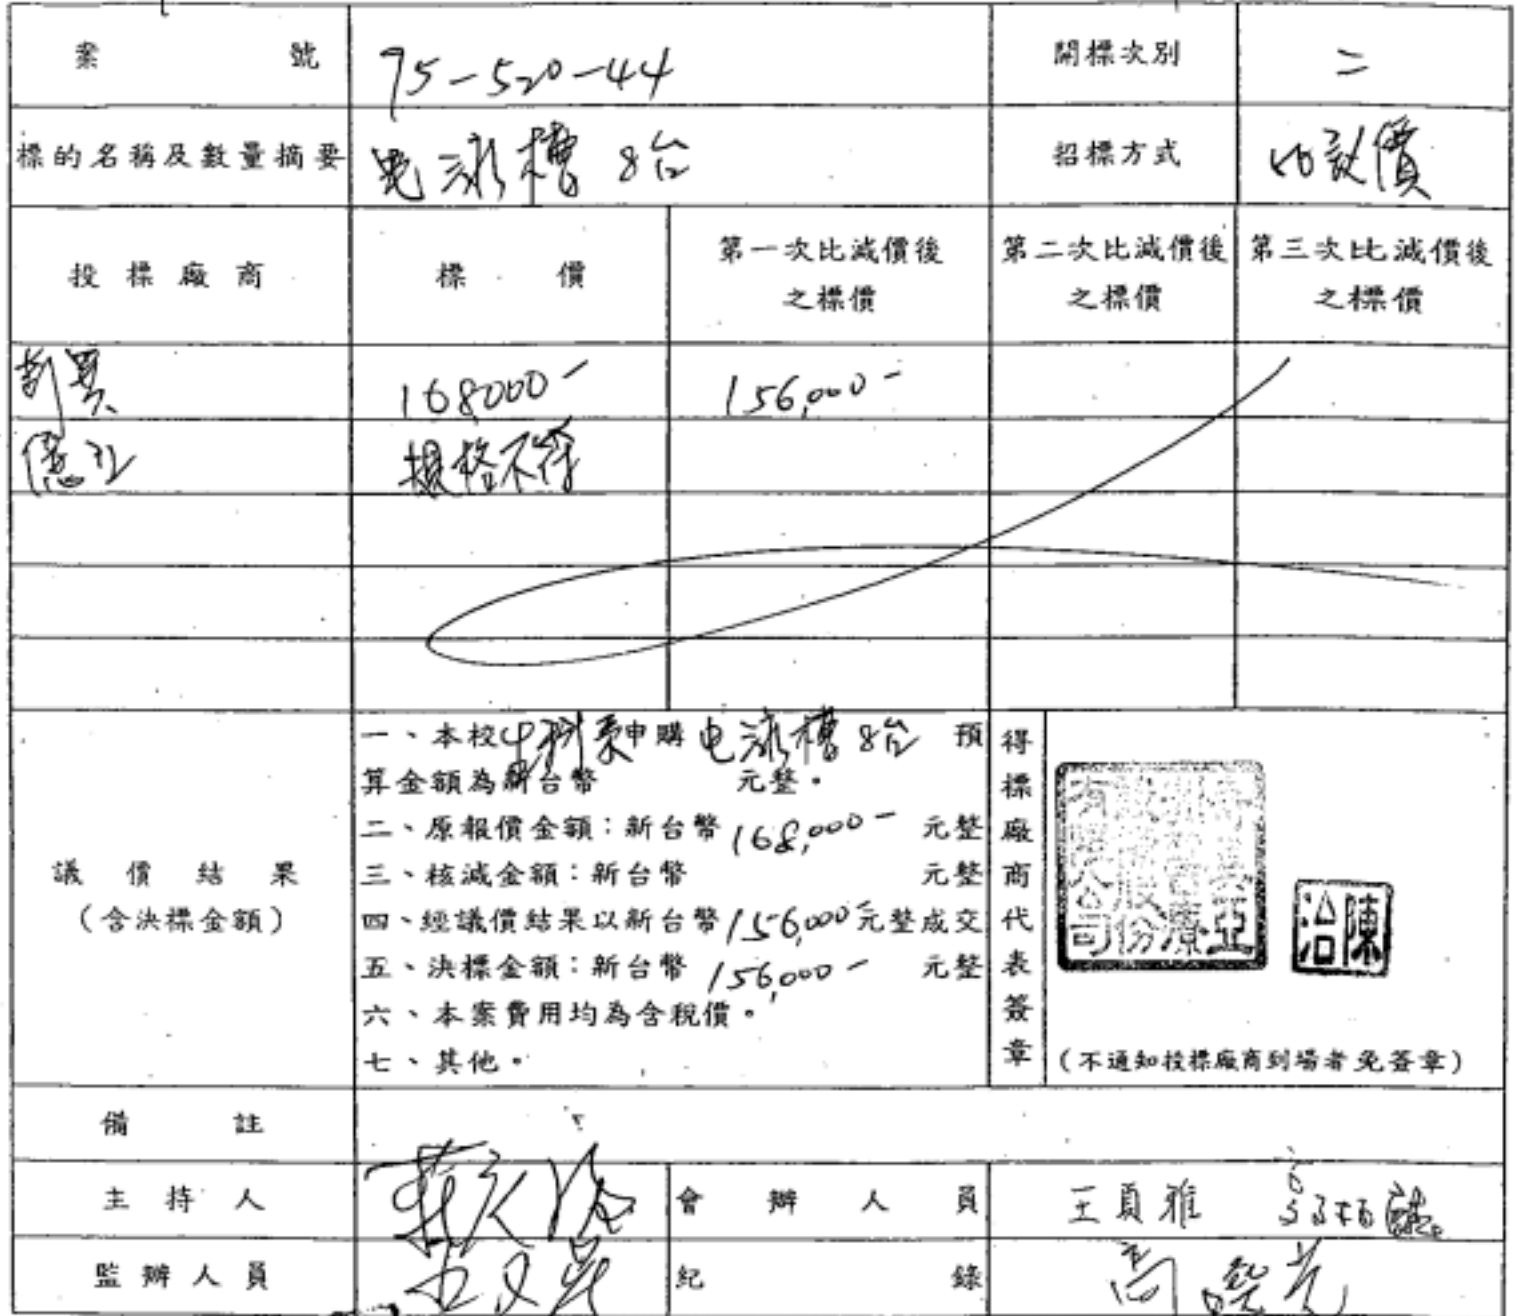 案號 95-520-44 開標次別 二
標的名稱及數量摘要 電泳槽 8台 招標方式 價
投標廠商 標價 第一次比減價後之標價 第二次比減價後之標價 第三次比減價後之標價
168000- 156,000-
規格不符
議價結果
(含決標金額)
一、本校 申購 电泳槽 8台 預
算金額為新台幣 元整。
二、原報價金額：新台幣 168,000- 元整
三、核減金額：新台幣 元整
四、經議價結果以新台幣 156,000- 元整成交
五、決標金額：新台幣 156,000- 元整
六、本案費用均為含稅價。
七、其他。
得標廠商代表簽章
有限公司
股份
陳治
(不通知投標廠商到場者免簽章)
備註
主持人 會辦人員 王頁雅
監辦人員 紀錄